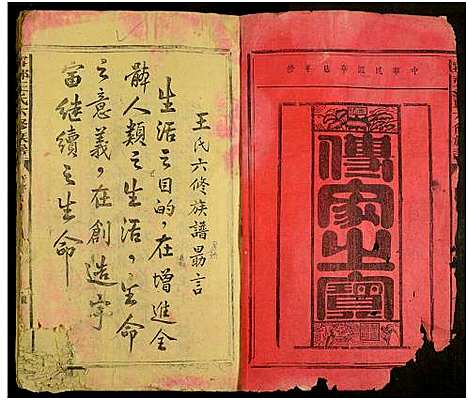 傳家之寶
王氏六修族譜勗言
生活之目的,在增進全
體人類之生活,生命
之意義,在創造宇
宙繼續之生命